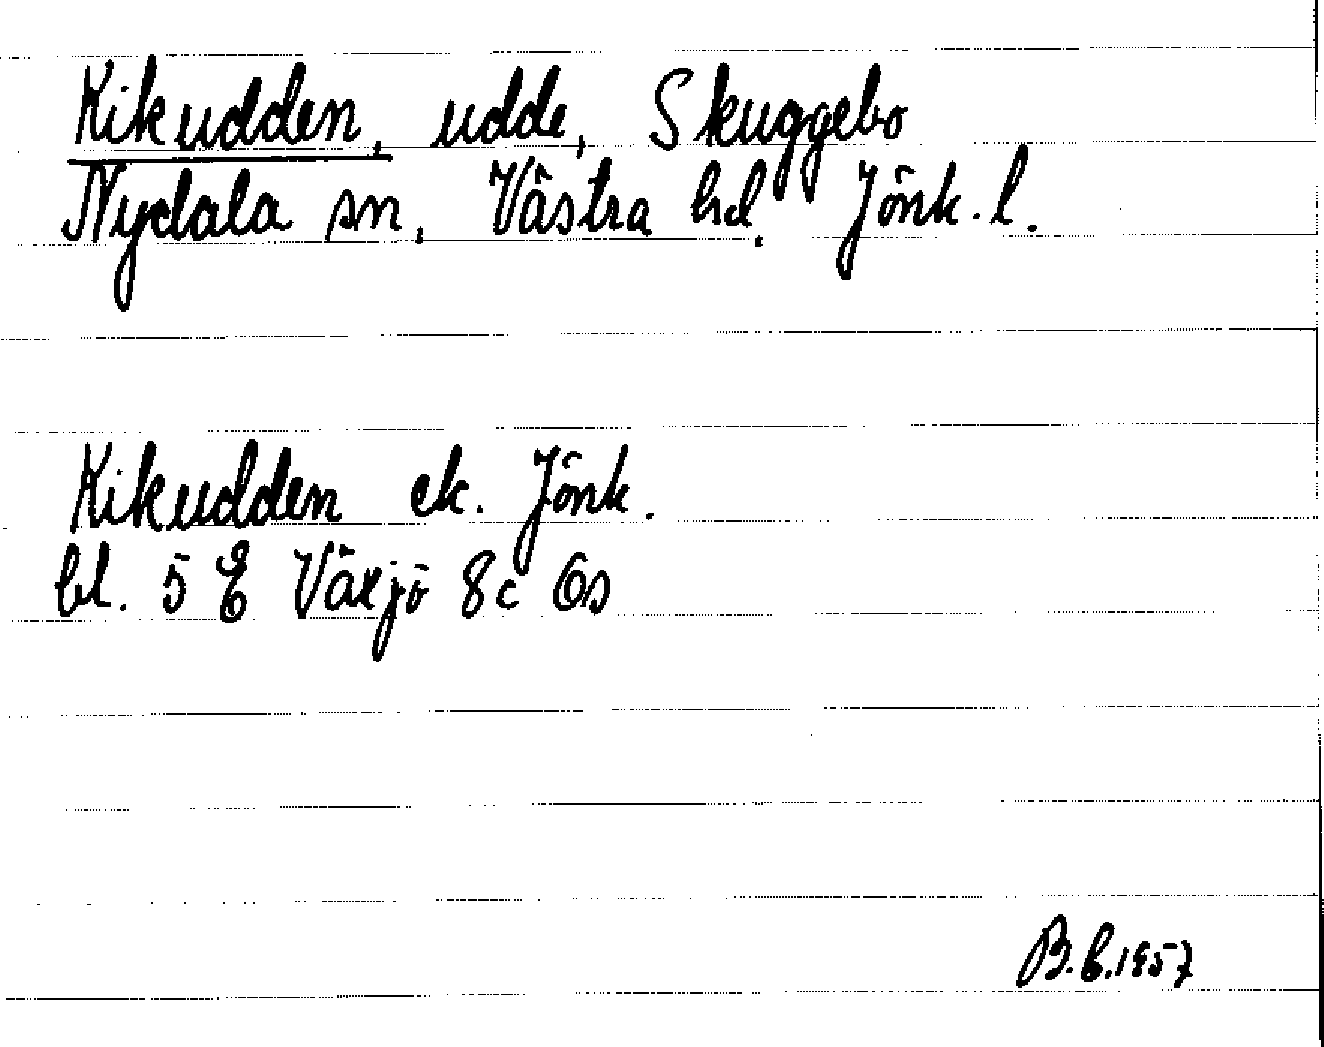 Kikudden, udde, Skuggebo
Nydala sn, Västra hd, Jönk. l.
Kikudden ek. Jönk.
bl. 5 E Växjö 8c Ös
B.E.1957